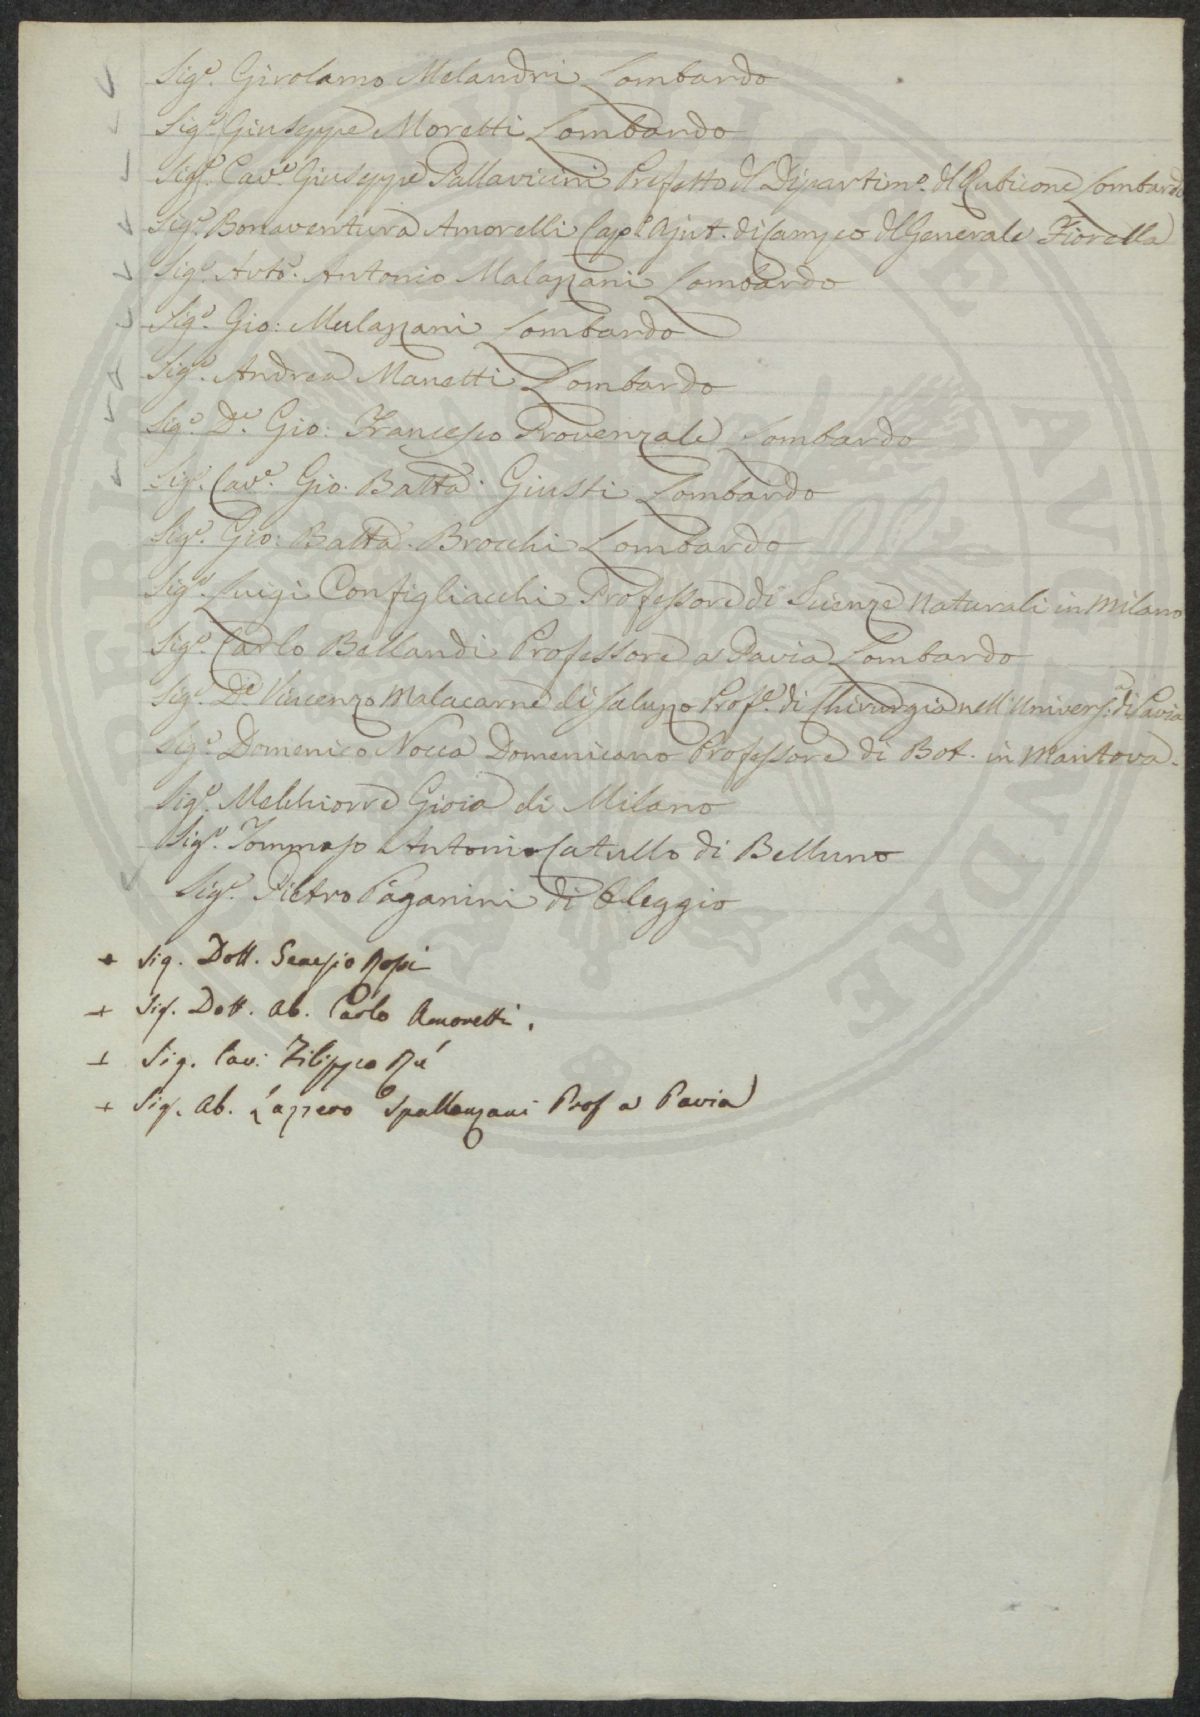 Sig.e Girolamo Melandri Lombardo
Sig.e Giuseppe Moretti Lombardo
Sig.e Cav.e Giuseppe Pallavicini Prefetto d'l Dipartim.o d'l Rubicone Lombardo
Sig.e Bonaventura Amorelli Cap.e Ajut. di Campo d'l Generale Fiorella
Sig.e Avto. Antonio Malazzani Lombardo
Sig.e Gio: Mulazzani Lombardo
Sig.e Andrea Manetti Lombardo
Sig.e D.e Gio: Francesco Provenzale Lombardo
Sig.e Cav.e Gio. Batta. Giusti Lombardo
Sig.e Gio: Batta. Brocchi Lombardo
Sig.e Luigi Configliacchi Professore di Scienze Naturali in Milano
Sig.e Carlo Bellandi Professore a Pavia Lombardo
Sig.e D.e Vincenzo Malacarne di Saluzzo Prof.e di Chirurgia nell'Univers.à di Pavia
Sig.e Domenico Nocca Domenicano Professore di Bot. in Mantova.
Sig.e Melchiorre Gioia di Milano
Sig.e Tommaso Antonio Catullo di Belluno
Sig.e Pietro Paganini di Oleggio
+ Sig. Dott. Rosi
+ Sig. Dott. Ab. Carlo Amoretti.
+ Sig. Cav: Filippo Ré
+ Sig. Ab. Lazzero Spallanzani Prof a Pavia